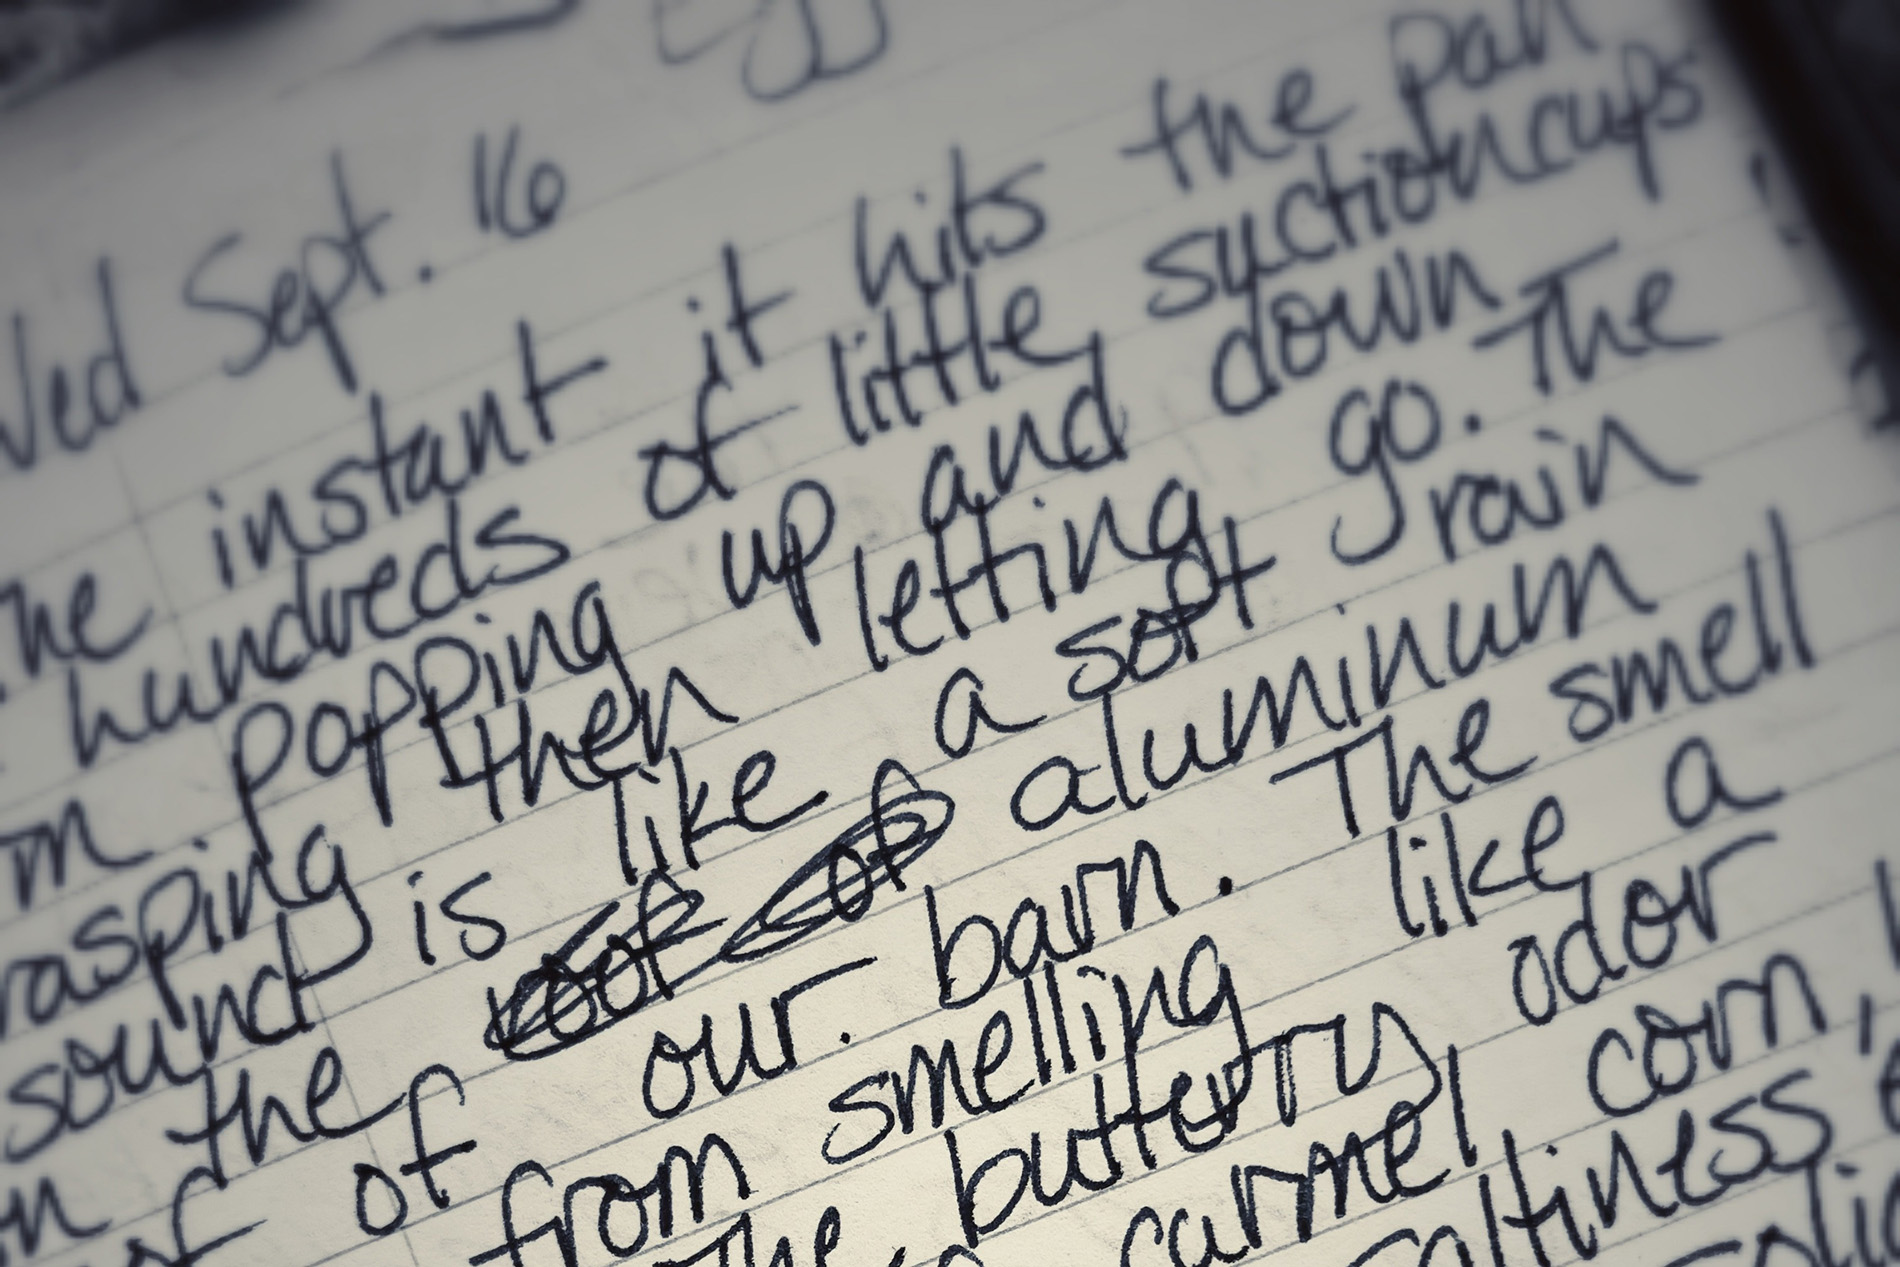 Wed Sept. 16
The instant it hits the pan
hundreds of little suction cups
popping up and down
grasping then letting go. The
sound is like a soft rain
on the roof of aluminum
of our barn. The smell
from smelling like a
the buttery odor
carmel corn,
saltiness